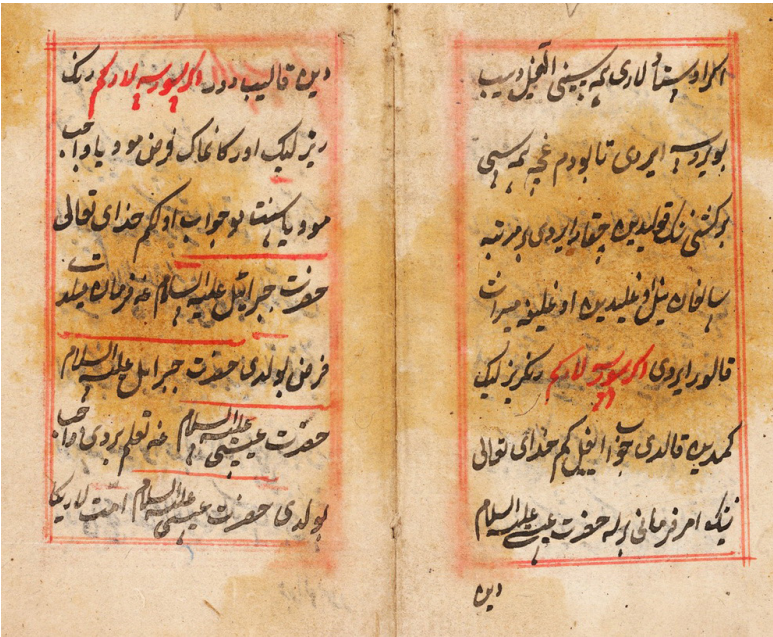 اکر اوستا لاری نمه سینی اتخیل دیب
بویروسه ایردی تا بودم غچه نمه سینی
بو کشی ننک قولیدین چقار ایردی بر مرتبه
سالغان نیل اوغلیدین اوغلیغه میراث
قالور ایردی اکر سورسه لارکم رنکریز لیک
کمدین قالدی جواب ایغیل کم خدای تعالی
نینک امر فرمانی برله حضرت عیسی علیه السلام
دین
دین قالیب دور اکر سورسه لارکم رنک
ریز لیک اورکانماک فرض مو و یا واجب
مو و یا سنت مو جواب اول کم خدای تعالی
حضرت جبرائیل علیه السلام غه فرمان قیلدی
فرض بولدی حضرت جبرایل علیه السلام
حضرت عیسی علیه السلام غه تعلم بردی واجب
بولدی حضرت عیسی علیه السلام امت لاریکا